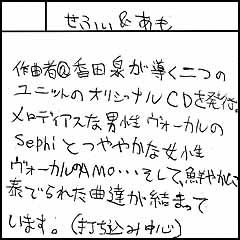 せふぃ&あも
作曲者@香田泉が導く二つの
ユニットのオリジナルCDを発行。
メロディアスな男性ヴォーカルの
Sephiとつややかな女性
ヴォーカルのAMO…そして、鮮やかに
奏でられた曲達が結まって
います。(打ち込み中心)